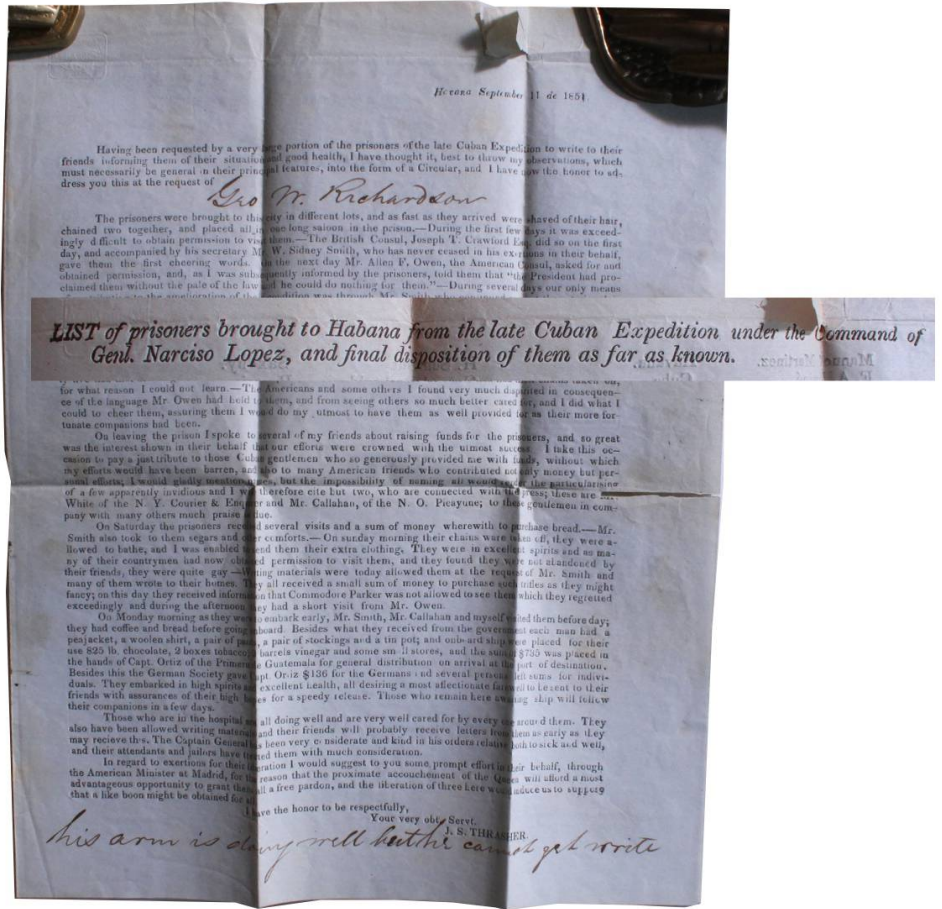 Havana September 11 de 1851
Having been requested by a very large portion of the prisoners of the late Cuban Expedition to write to their
friends informing them of their situation and good health, I have thought it, best to throw my observations, which
must necessarily be general in their principal features, into the form of a Circular, and I have now the honor to ad-
dress you this at the request of
Geo W. Richardson
The prisoners were brought to this city in different lots, and as fast as they arrived were shaved of their hair,
chained two together, and placed all in one long saloon in the prison.—During the first few days it was exceed-
ingly difficult to obtain permission to visit them.—The British Consul, Joseph T. Crawford Esq. did so on the first
day, and accompanied by his secretary Mr. W. Sidney Smith, who has never ceased in his exertions in their behalf,
gave them the first cheering words. On the next day Mr. Allen F. Owen, the American Consul, asked for and
obtained permission, and, as I was subsequently informed by the prisoners, told them that "the President had pro-
claimed them without the pale of the law and he could do nothing for them."—During several days our only means
LIST of prisoners brought to Habana from the late Cuban Expedition under the Command of
Genl. Narciso Lopez, and final disposition of them as far as known.
for what reason I could not learn.—The Americans and some others I found very much dispirited in consequen-
ce of the language Mr. Owen had held to them, and from seeing others so much better cared for, and I did what I
could to cheer them, assuring them I would do my utmost to have them as well provided for as their more for-
tunate companions had been.
On leaving the prison I spoke to several of my friends about raising funds for the prisoners, and so great
was the interest shown in their behalf that our efforts were crowned with the utmost success I take this oc-
casion to pay a just tribute to those Cuban gentlemen who so generously provided me with funds, without which
my efforts would have been barren, and also to many American friends who contributed not only money but per-
sonal efforts; I would gladly mention names, but the impossibility of naming all would the particularising
of a few apparently invidious and I will therefore cite but two, who are connected with the press; these are Mr.
White of the N. Y. Courier & Enquirer and Mr. Callahan, of the N. O. Picayune; to these gentlemen in com-
pany with many others much praise is due.
On Saturday the prisoners received several visits and a sum of money wherewith to purchase bread.—Mr.
Smith also took to them segars and other comforts.—On sunday morning their chains were taken off, they were a-
llowed to bathe, and I was enabled to send them their extra clothing. They were in excellent spirits and as ma-
ny of their countrymen had now obtained permission to visit them, and they found they were not abandoned by
their friends, they were quite gay—Writing materials were today allowed them at the request of Mr. Smith and
many of them wrote to their homes. They all received a small sum of money to purchase such trifles as they might
fancy; on this day they received information that Commodore Parker was not allowed to see them which they regretted
exceedingly and during the afternoon they had a short visit from Mr. Owen.
On Monday morning as they were to embark early, Mr. Smith, Mr. Callahan and myself visited them before day;
they had coffee and bread before going aboard. Besides what they received from the government each man had a
peajacket, a woolen shirt, a pair of pants, a pair of stockings and a tin pot; and on board ship were placed for their
use 825 lb. chocolate, 2 boxes tobacco, barrels vinegar and some small stores, and the sum of $735 was placed in
the hands of Capt. Ortiz of the Primera Guatemala for general distribution on arrival at the port of destination.
Besides this the German Society gave Capt Ortiz $136 for the Germans and several persons left sums for indivi-
duals. They embarked in high spirits and excellent health, all desiring a most affectionate farewell to be sent to their
friends with assurances of their high hopes for a speedy release. Those who remain here awaiting ship will follow
their companions in a few days.
Those who are in the hospital are all doing well and are very well cared for by every one around them. They
also have been allowed writing materials and their friends will probably receive letters from them as early as they
may recieve this. The Captain General has been very considerate and kind in his orders relative both to sick and well,
and their attendants and jailors have treated them with much consideration.
In regard to exertions for their liberation I would suggest to you some prompt effort in their behalf, through
the American Minister at Madrid, for the reason that the proximate accouchement of the Queen will afford a most
advantageous opportunity to grant them all a free pardon, and the liberation of three here would induce us to suppose
that a like boon might be obtained for all
I have the honor to be respectfully,
Your very obt. Servt.
J. S. THRASHER.
his arm is doing well but he cannot yet write